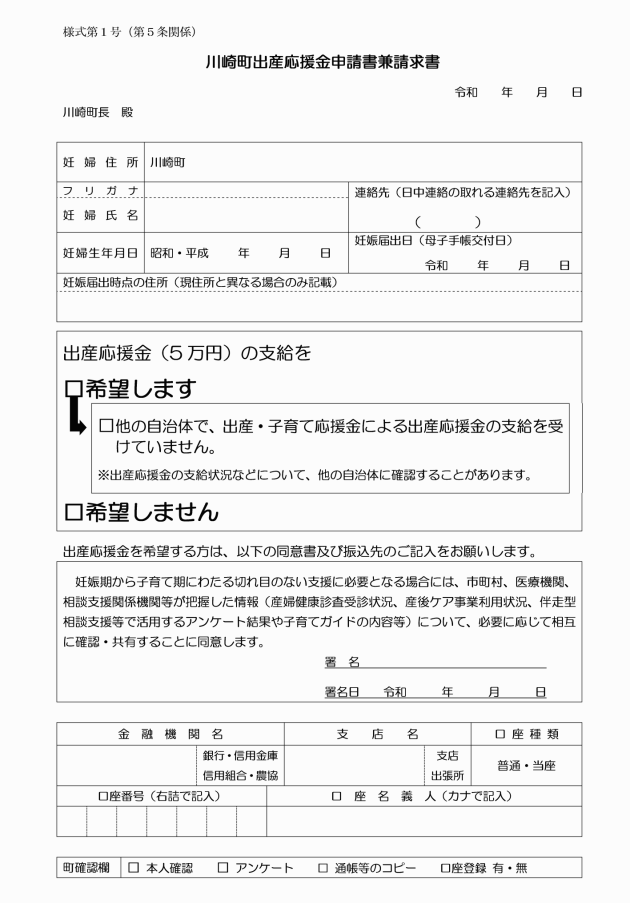 様式第１号（第５条関係）
川崎町出産応援金申請書兼請求書
令和　　年　　月　　日
川崎町長　殿
妊婦住所　川崎町
フリガナ　連絡先（日中連絡の取れる連絡先を記入）
妊婦氏名　（　　　）
妊婦生年月日　昭和・平成　　年　　月　　日　妊娠届出日（母子手帳交付日）
令和　　年　　月　　日
妊娠届出時点の住所（現住所と異なる場合のみ記載）
出産応援金（５万円）の支給を
□希望します
□他の自治体で、出産・子育て応援金による出産応援金の支給を受
けていません。
※出産応援金の支給状況などについて、他の自治体に確認することがあります。
□希望しません
出産応援金を希望する方は、以下の同意書及び振込先のご記入をお願いします。
妊娠期から子育て期にわたる切れ目のない支援に必要となる場合には、市町村、医療機関、
相談支援関係機関等が把握した情報（産婦健康診査受診状況、産後ケア事業利用状況、伴走型
相談支援等で活用するアンケート結果や子育てガイドの内容等）について、必要に応じて相互
に確認・共有することに同意します。
署　名
署名日　　令和　　年　　月　　日
金融機関名　支店名　口座種類
銀行・信用金庫　支店　普通・当座
信用組合・農協　出張所
口座番号（右詰で記入）　口座名義人（カナで記入）
町確認欄　□ 本人確認　□ アンケート　□ 通帳等のコピー　口座登録 有・無